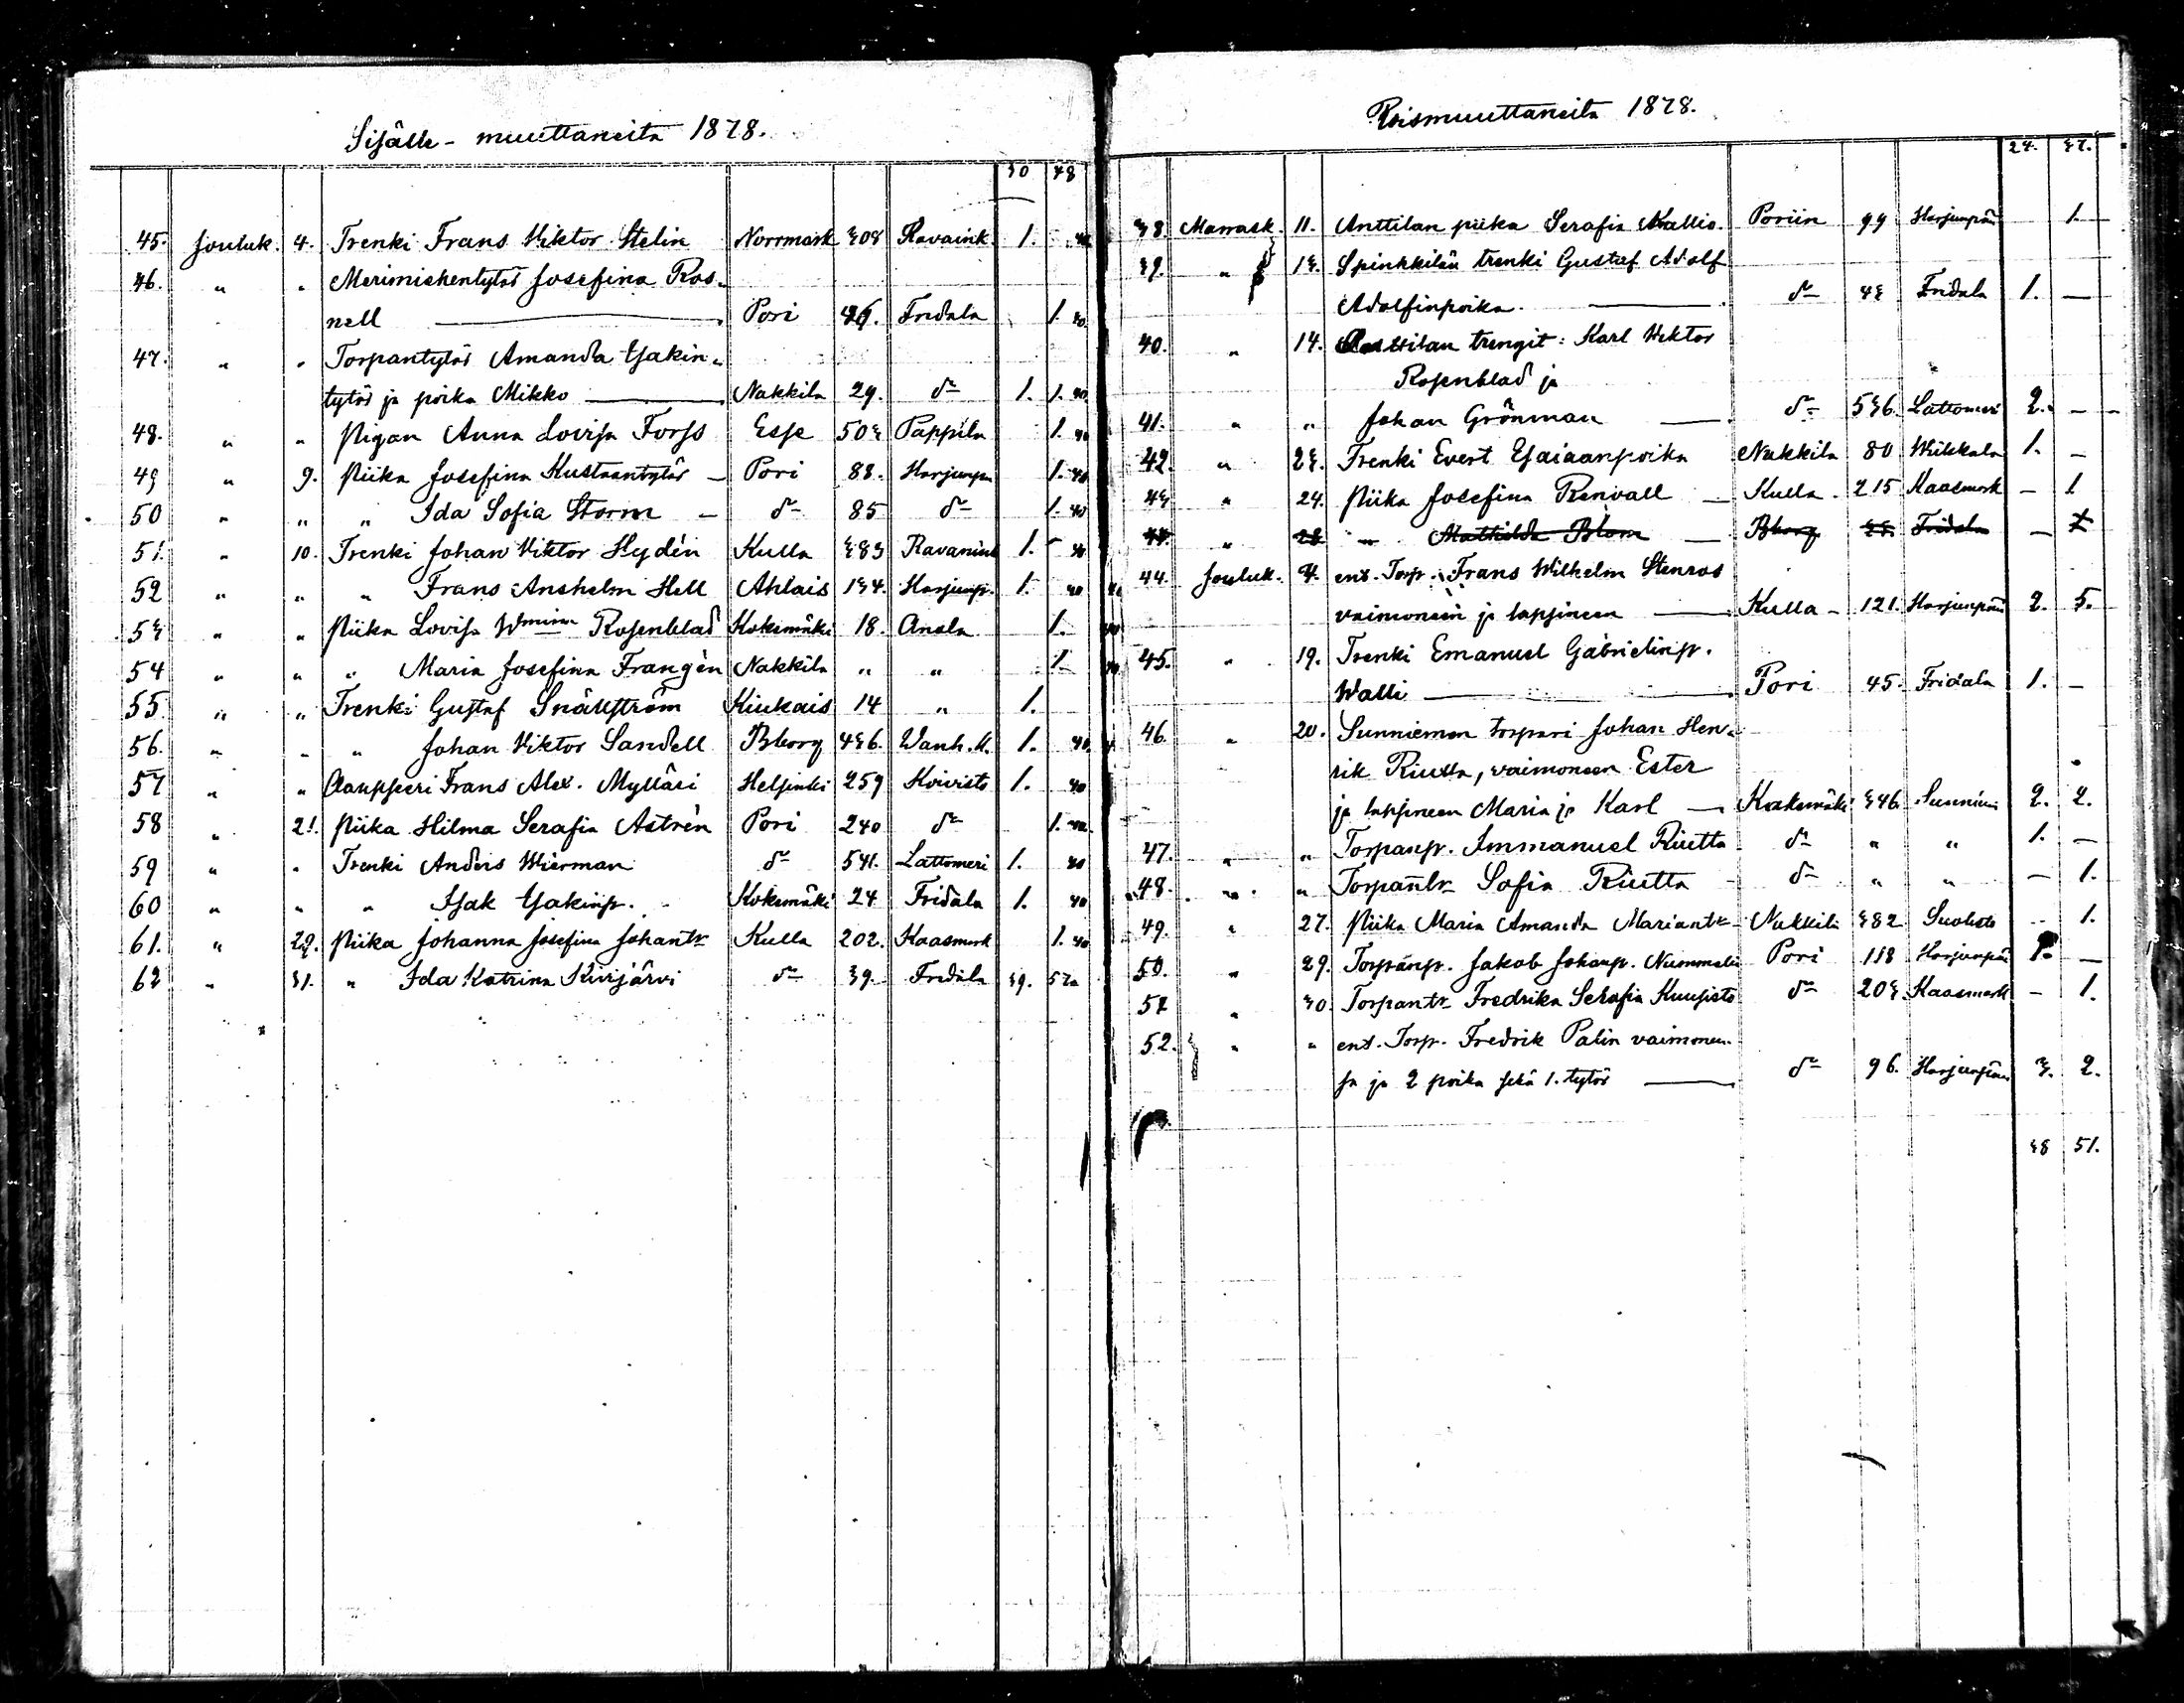 Sisälle-muuttaneita 1878.
30 48
45. Jouluk. 4. Trenki Frans Viktor Stelin Norrmark 308 Ravanik. 1. 40
46. " " Merimiehentytär Josefina Ros-
nell — Pori 46. Fridala 1. 40
47. " " Torpantytär Amanda Yakin-
tytär ja poika Mikko — Nakkila 29. do 1. 1. 40
48. " " Pigan Anna Lovisa Forss Esse 503 Pappila 1. 40
49 " 9. Piika Josefina Kustaantytär — Pori 88. Harjunp. 1. 40
50 " " " Ida Sofia Storm — do 85 do 1. 40
51. " 10. Trenki Johan Viktor Hydén Kulla 383 Ravanink 1. 40
52 " " " Frans Anshelm Hell Ahlais 134. Harjunp. 1. 40
53 " " Piika Lovisa Wmina Rosenblad Kokemäki 18. Anola 1.
54 " " " Maria Josefina Frangèn Nakkila " " 1.
55. " " Trenki Gustaf Snällström Kiukais 14 " 1.
56. " " " Johan Viktor Sandell Bborg 436. Wanh.K. 1. 40.
57 " " Clanpseeri Frans Alex. Mylläri Helsinki 259 Koivisto 1. 40
58 " 21. Piika Hilma Serafia Astrèn Pori 240 do 1. 40
59 " " Trenki Anders Wierman do 541. Lattomeri 1. 40
60 " " " Isak Yakinp. Kokemäki 24 Fridala 1. 40
61. " 29. Piika Johanna Josefina Johantr Kulla 202. Kaasmark 1. 40
62 " 31. " Ida Katrina Kivijärvi do 39. Fridala 39. 52
Poismuuttaneita 1878.
24. 37.
38. Marrask. 11. Anttilan piika Serafia Kallio. Poriin 99 Harjunpää 1.
39. " 13. Spinkkilän trenki Gustaf Adolf
Adolfinpoika. — do 43 Fridala 1. —
40. " 14. Anttilan trengit: Karl Viktor
Rosenblad ja
41. " " Johan Grönman — do 536. Lattomeri 2. —
42. " 23. Trenki Evert Esaiaanpoika Nakkila 80 Wiikkala 1. —
43 " 24. Piika Josefina Renvall — Kulla 215 Kaasmark — 1
44. " 28 " Mathilda Blom — Bborg 33. Fridala — 1
44. Jouluk. 4. ent. Torp. Frans Wilhelm Stenros
vaimoneen ja lapsineen — Kulla 121. Harjunpää 2. 5.
45. " 19. Trenki Emanuel Gabrielinp.
Walli — Pori 45. Fridala 1. —
46. " 20. Sunniemen torpari Johan Hen-
rik Riutta, vaimoneen Ester
ja lapsineen Maria ja Karl — Kokemäki 346. Sunniemi 2. 2.
47. " " Torpanp. Immanuel Riutta do " " 1. —
48. " " Torpantr Sofia Riutta do " " — 1.
49. " 27. Piika Maria Amanda Mariantr Nakkila 382 Suolisto — 1.
50. " 29. Torpanp. Jakob Johanp. Nummelin Pori 118 Harjunpää 1. —
51 " 30. Torpantr Fredrika Serafia Kuusisto do 203. Kaasmark — 1.
52. " " ent. Torp. Fredrik Palin vaimonen-
sa ja 2 poika sekä 1. tytär — do 96. Harjunpää 3. 2.
38 51.